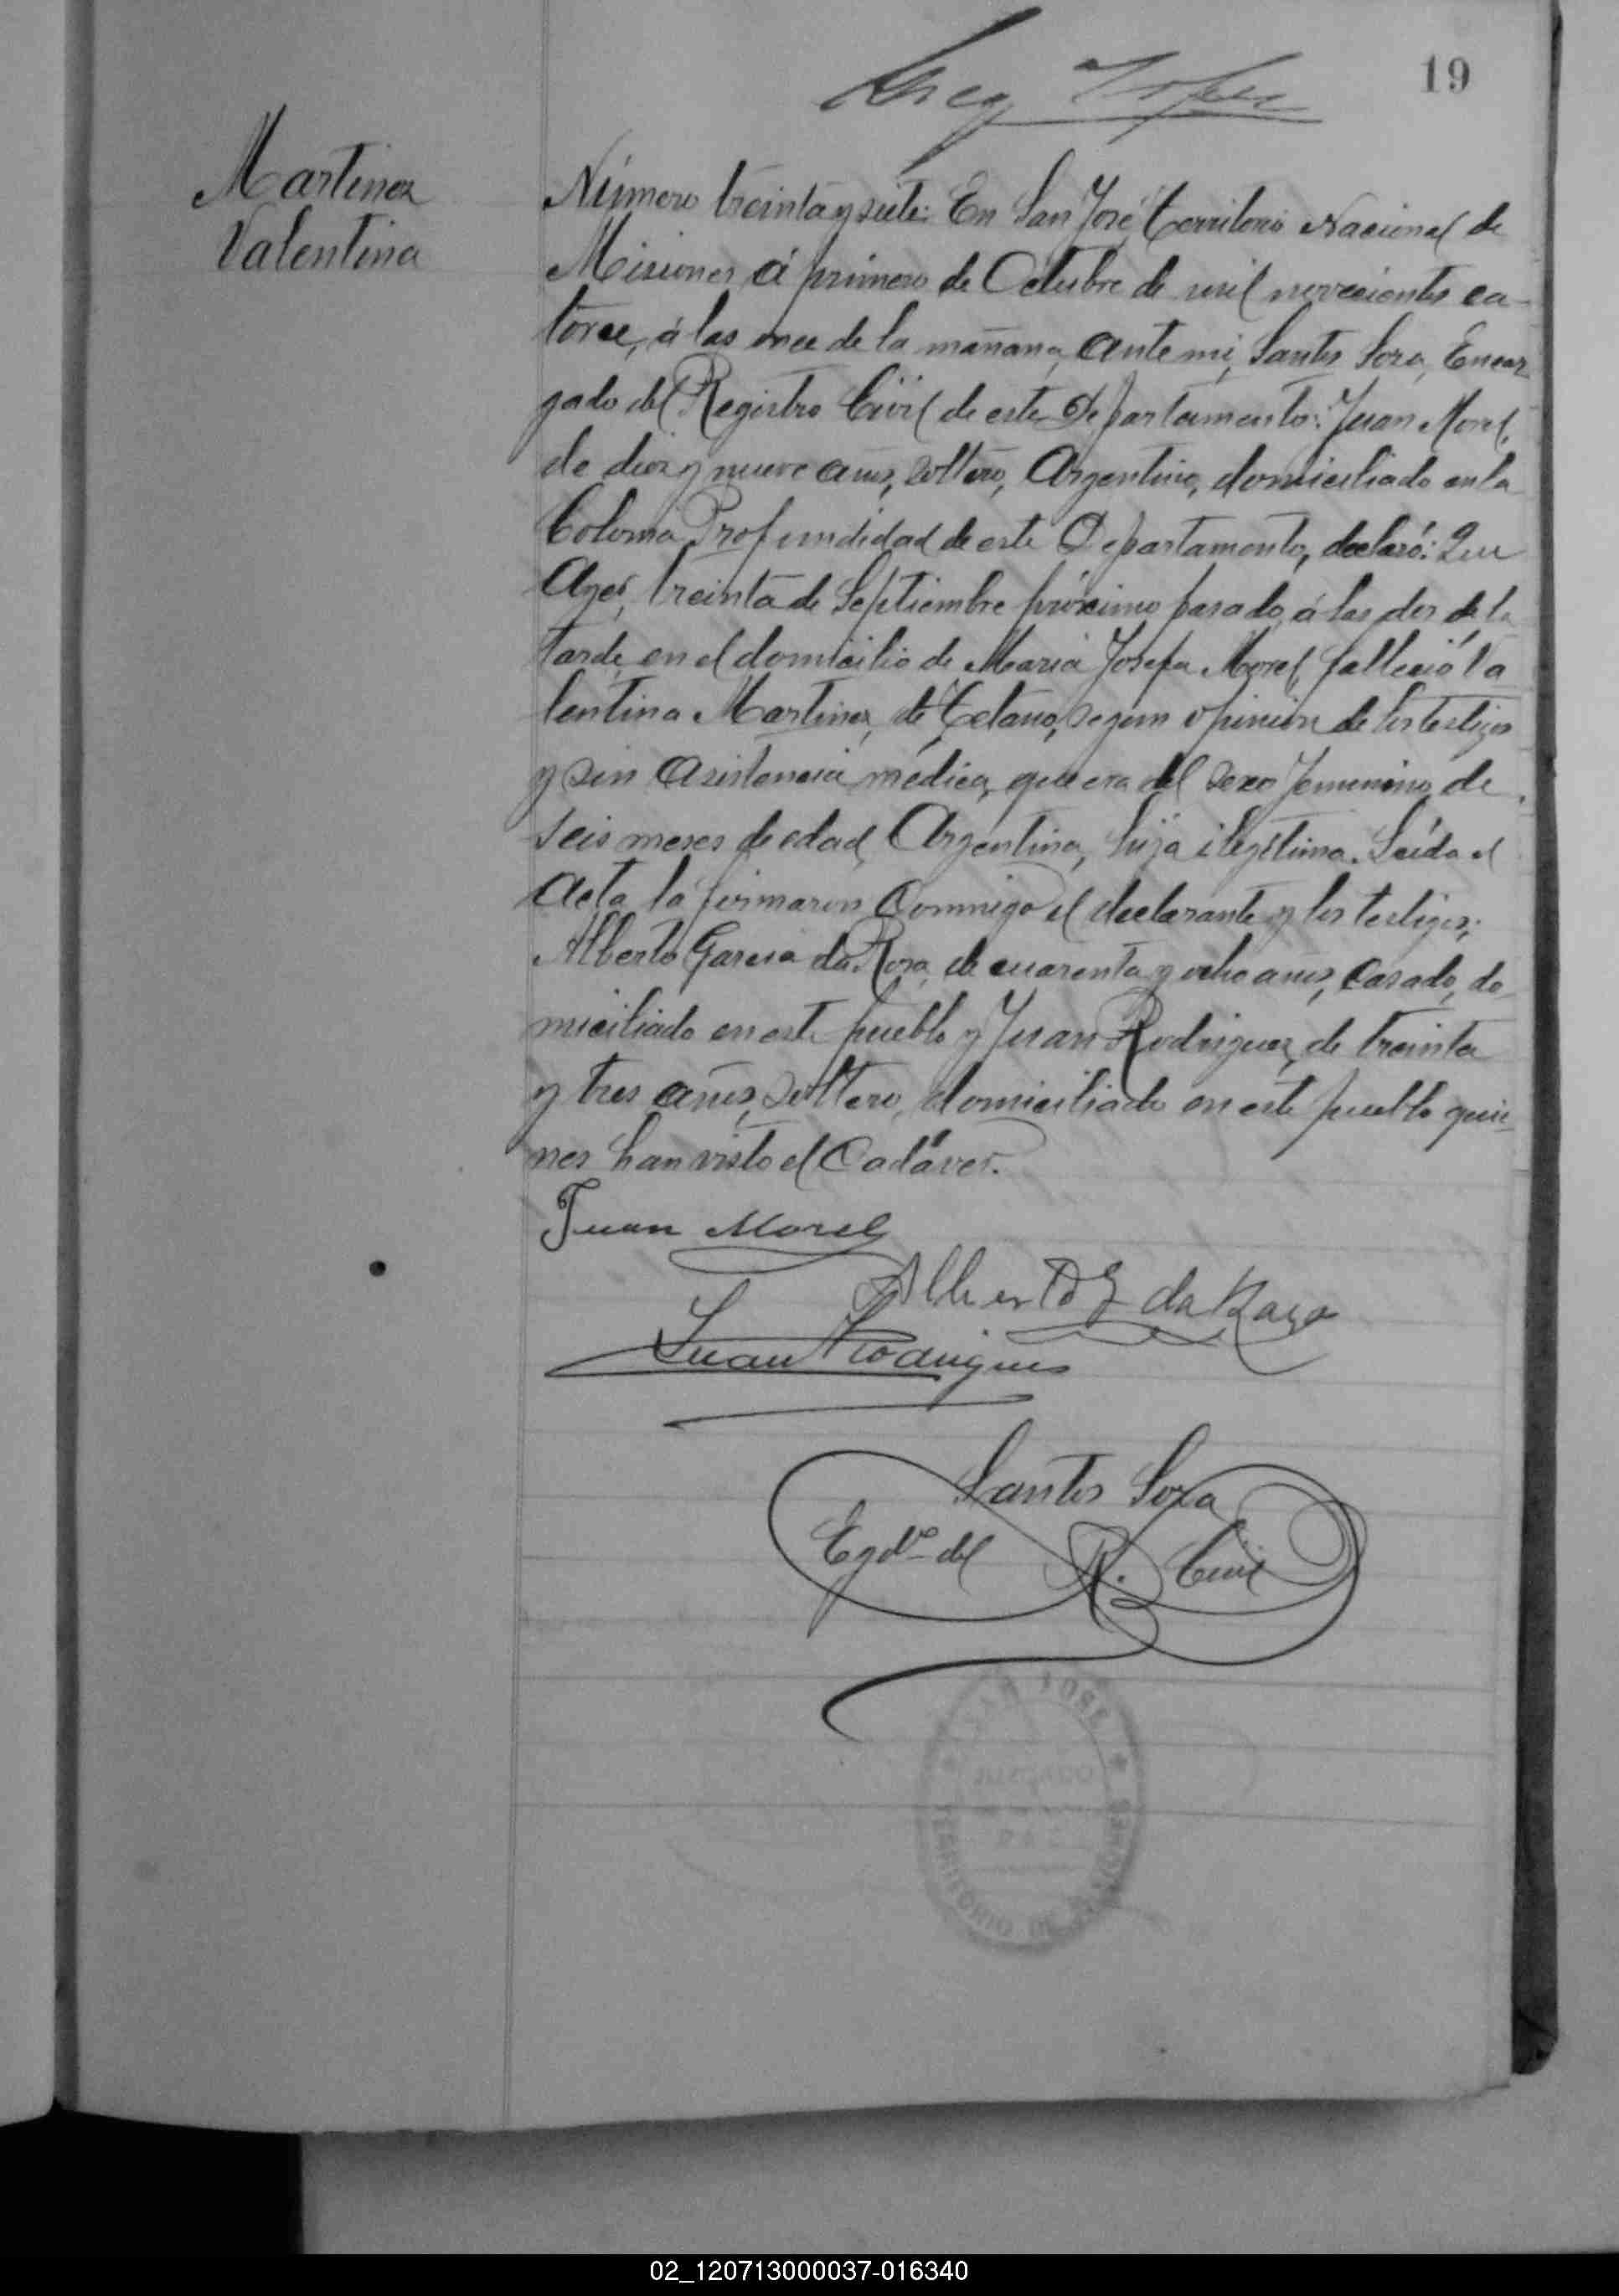 19
Martinez
Valentina
Número treinta y siete: En San José, territorio Nacional de
Misiones á primero de Octubre de mil novecientos ca-
torce, á las once de la mañana, ante mi, Santos Soza, Encar
gado del Registro Civil de este Departamento: Juan Morel,
de diez y nueve años, soltero, Argentino, domiciliado en la
Colonia Profundidad de este Departamento, declaró: Que
Ayer, treinta de Septiembre próximo pasado, á las dos de la
tarde, en el domicilio de Maria Josefa Morel, falleció Va
lentina Martinez, de Tetano, segun opinion de los testigos
y sin asistencia médica, que era del sexo femenino, de
seis meses de edad, Argentina, hija ilegítima. Leída el
acta la firmaron conmigo el declarante y los testigos;
Alberto Garcia da Roza, de cuarenta y ocho años, casado, do
miciliado en este pueblo y Juan Rodriguez, de treinta
y tres años, soltero, domiciliado en este pueblo quie-
nes han visto el Cadáver.
Juan Morel
Alberto G da Roza
Juan Rodrigues
Santos Soza
Egdo del R. Civil
SAN JOSÉ
TERRITORIO DE MISIONES
02_120713000037-016340